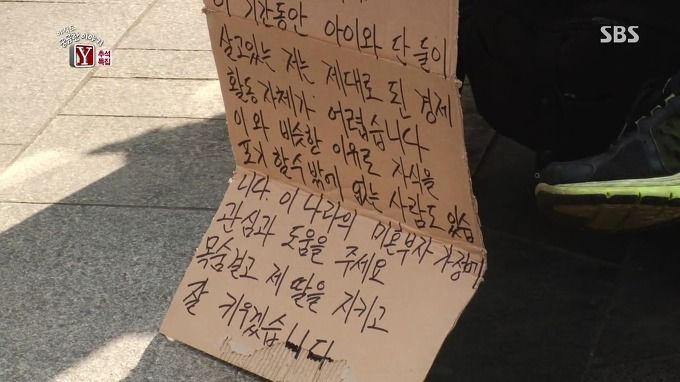 궁금한 이야기
Y
추석
특집
SBS
이 기간동안 아이와 단 둘이
살고있는 저는 제대로 된 경제
활동 자체가 어렵습니다
이와 비슷한 이유로 자식을
포기 할수 밖에 없는 사람도 있습
니다. 이 나라의 미혼부자 가정에
관심과 도움을 주세요
목숨걸고 제 딸을 지키고
잘 키우겠습니다